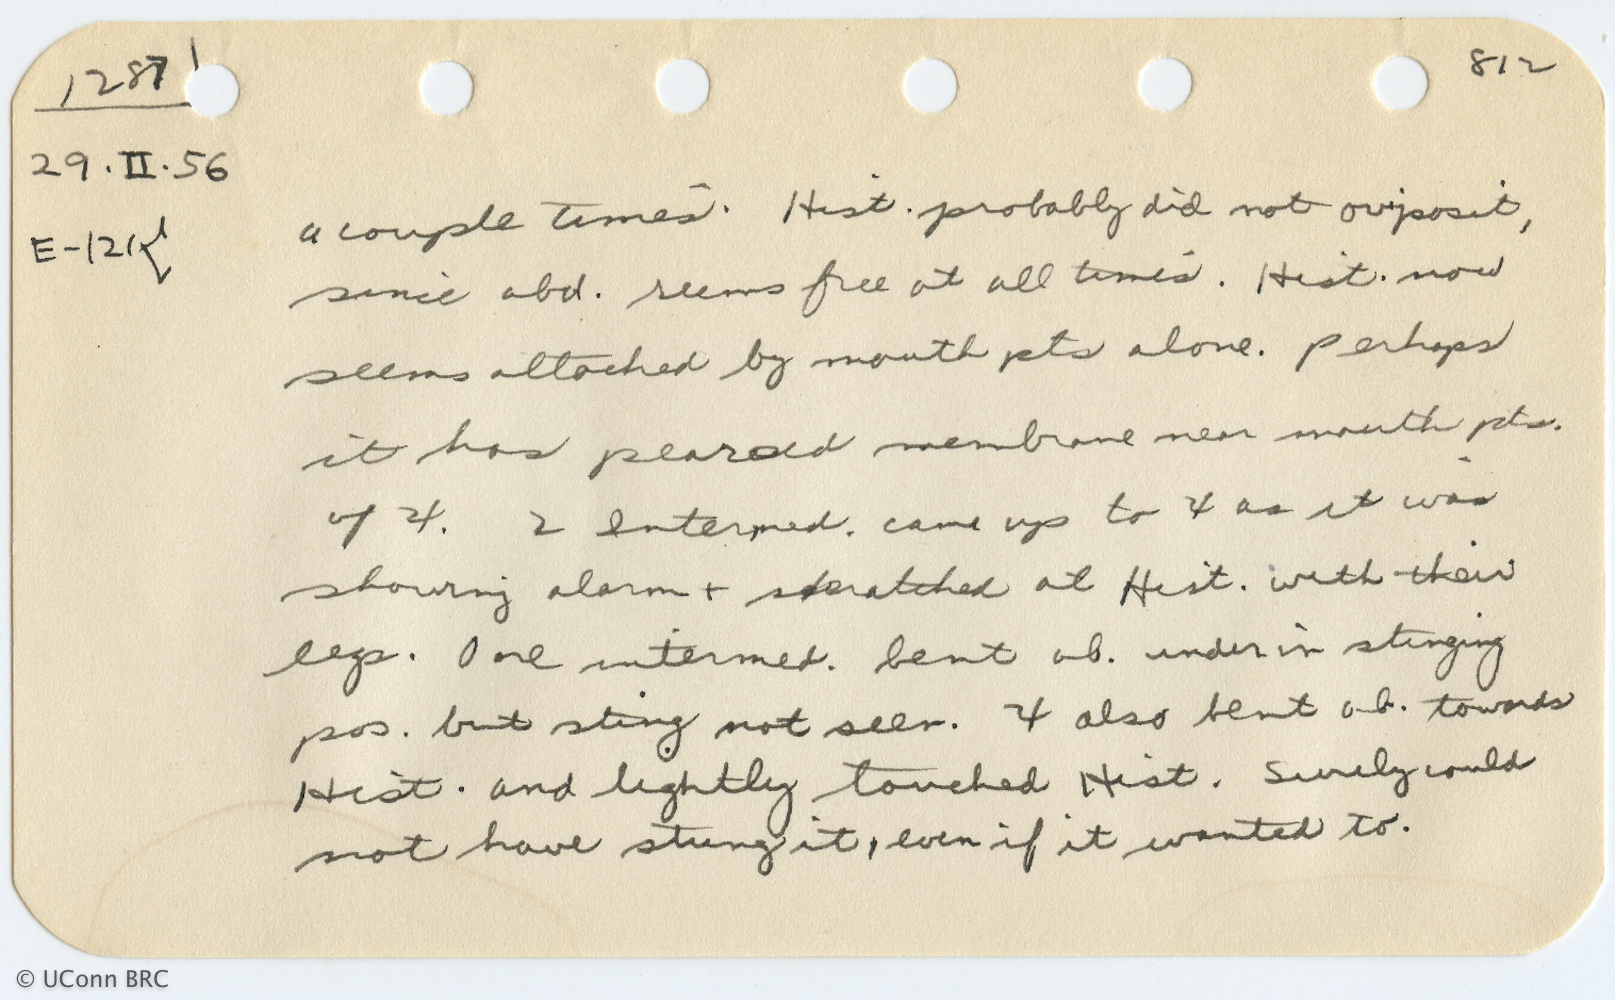 1287
812
29.II.56
E-121
a couple times. Hist. probably did not oviposit,
since abd. seems free at all times. Hist. now
seems attached by mouth pts alone. Perhaps
it has pearced membrane near mouth pts.
of 4. 2 intermed. came up to 4 as it was
showing alarm + scratched at Hist. with their
legs. One intermed. bent ab. under in stinging
pos. but sting not seen. 4 also bent ab. towards
Hist. and lightly touched Hist. Surely could
not have stung it, even if it wanted to.
© UConn BRC